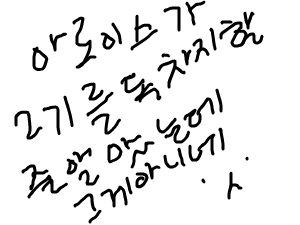 아로이스가
2기를 독차지할
줄 알았는데
그게아니네